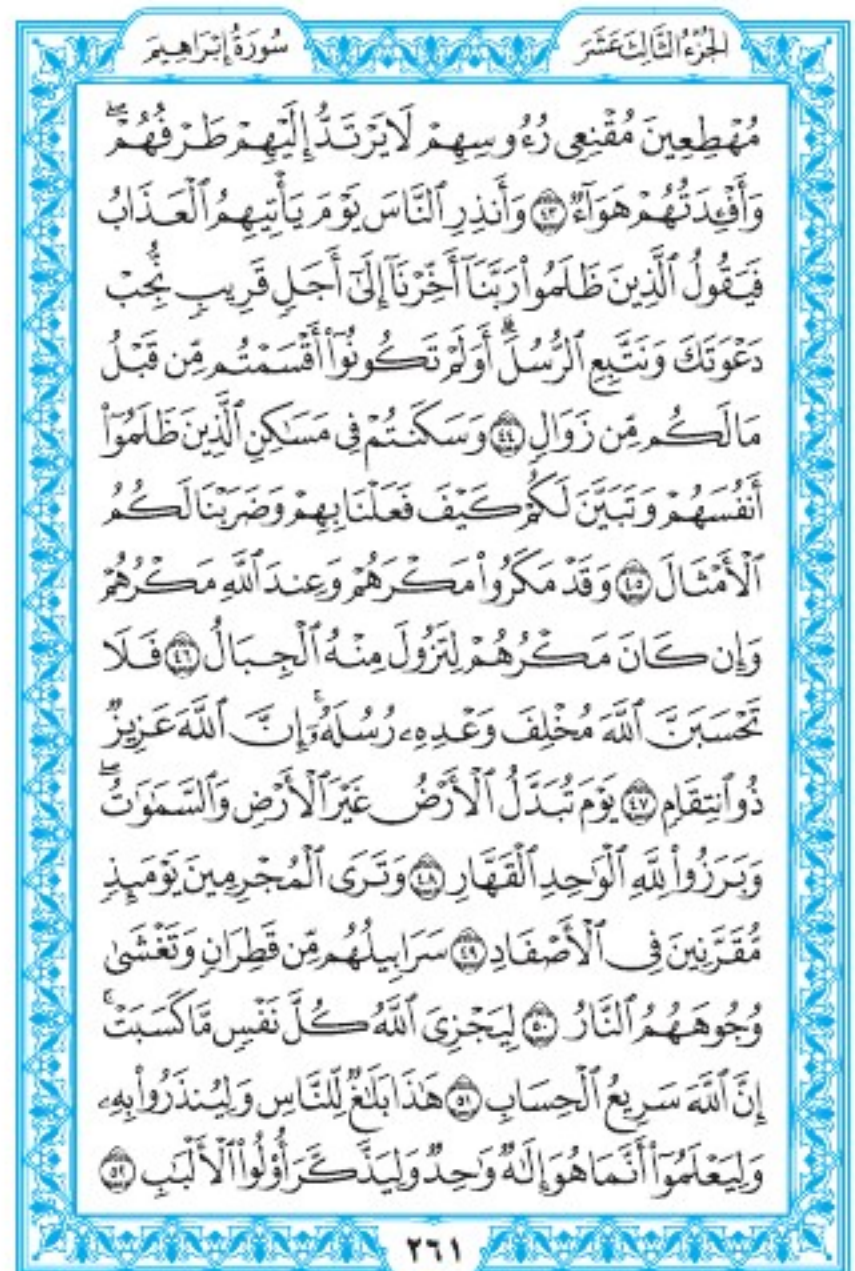 الجُزْءُ الثَّالِثَ عَشَرَ
سُورَةُ إِبْرَاهِيمَ
مُهْطِعِينَ مُقْنِعِي رُءُوسِهِمْ لَا يَرْتَدُّ إِلَيْهِمْ طَرْفُهُمْۖ
وَأَفْـِٔدَتُهُمْ هَوَآءٌ ٤٣ وَأَنذِرِ ٱلنَّاسَ يَوْمَ يَأْتِيهِمُ ٱلْعَذَابُ
فَيَقُولُ ٱلَّذِينَ ظَلَمُوا۟ رَبَّنَآ أَخِّرْنَآ إِلَىٰٓ أَجَلٍ قَرِيبٍ نُّجِبْ
دَعْوَتَكَ وَنَتَّبِعِ ٱلرُّسُلَۗ أَوَلَمْ تَكُونُوٓا۟ أَقْسَمْتُم مِّن قَبْلُ
مَا لَكُم مِّن زَوَالٍ ٤٤ وَسَكَنتُمْ فِى مَسَٰكِنِ ٱلَّذِينَ ظَلَمُوٓا۟
أَنفُسَهُمْ وَتَبَيَّنَ لَكُمْ كَيْفَ فَعَلْنَا بِهِمْ وَضَرَبْنَا لَكُمُ
ٱلْأَمْثَالَ ٤٥ وَقَدْ مَكَرُوا۟ مَكْرَهُمْ وَعِندَ ٱللَّهِ مَكْرُهُمْ
وَإِن كَانَ مَكْرُهُمْ لِتَزُولَ مِنْهُ ٱلْجِبَالُ ٤٦ فَلَا
تَحْسَبَنَّ ٱللَّهَ مُخْلِفَ وَعْدِهِۦ رُسُلَهُۥٓۚ إِنَّ ٱللَّهَ عَزِيزٌ
ذُو ٱنتِقَامٍ ٤٧ يَوْمَ تُبَدَّلُ ٱلْأَرْضُ غَيْرَ ٱلْأَرْضِ وَٱلسَّمَٰوَٰتُۖ
وَبَرَزُوا۟ لِلَّهِ ٱلْوَٰحِدِ ٱلْقَهَّارِ ٤٨ وَتَرَى ٱلْمُجْرِمِينَ يَوْمَئِذٍ
مُّقَرَّنِينَ فِى ٱلْأَصْفَادِ ٤٩ سَرَابِيلُهُم مِّن قَطِرَانٍ وَتَغْشَىٰ
وُجُوهَهُمُ ٱلنَّارُ ٥٠ لِيَجْزِىَ ٱللَّهُ كُلَّ نَفْسٍ مَّا كَسَبَتْۚ
إِنَّ ٱللَّهَ سَرِيعُ ٱلْحِسَابِ ٥١ هَٰذَا بَلَٰغٌ لِّلنَّاسِ وَلِيُنذَرُوا۟ بِهِۦ
وَلِيَعْلَمُوٓا۟ أَنَّمَا هُوَ إِلَٰهٌ وَٰحِدٌ وَلِيَذَّكَّرَ أُو۟لُوا۟ ٱلْأَلْبَٰبِ ٥٢
٢٦١